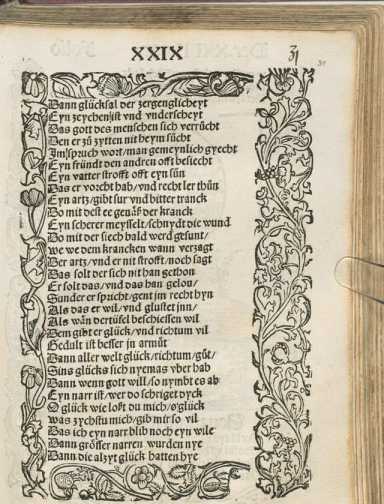 XXIX
31
Dann glücksal der zergenglicheyt
Eyn zeychen ist vnd vnderscheyt
Das gott des menschen sich verrücht
Den er zů zytten nit heym sücht
Im spruch wort/man gemeynlich gyecht
Eyn fründt den andren offt besiecht
Eyn vatter strofft offt eyn sün
Das er vorcht hab/vnd recht ler thůn
Eyn artz/gibt sur vnd bitter tranck
Do mit dest ee genäß der kranck
Eyn scherer meysselt/schnydt die wund
Do mit der siech bald werd gesunt/
we we dem krancken wann verzagt
Der artz/vnd er nit strofft/noch sagt
Das solt der sich nit han gethon
Er solt das/vnd das han gelon/
Sunder er spricht/gent im recht hyn
Als das er wil/vnd glustet jnn/
Als wän der tüfel beschiessen wil
Dem gibt er glück/vnd richtum vil
Gedult ist besser jn armůt
Dann aller welt glück/richtum/gůt/
Syns glücks sich nyemas vber hab
Dann wenn gott will/so nymbt es ab
Eyn narr ist/wer do schriget dyck
O glück wie loßt du mich/o glück
was zychstu mich/gib mir so vil
Das ich eyn narr blib noch eyn wile
Dann grösser narren wurden nye
Dann die alzyt glück hatten hye